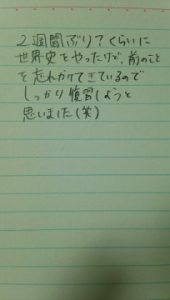 2週間ぶり?くらいに
世界史をやったけど、前のこと
を忘れかけてきているので
しっかり復習しようと
思いました(笑)